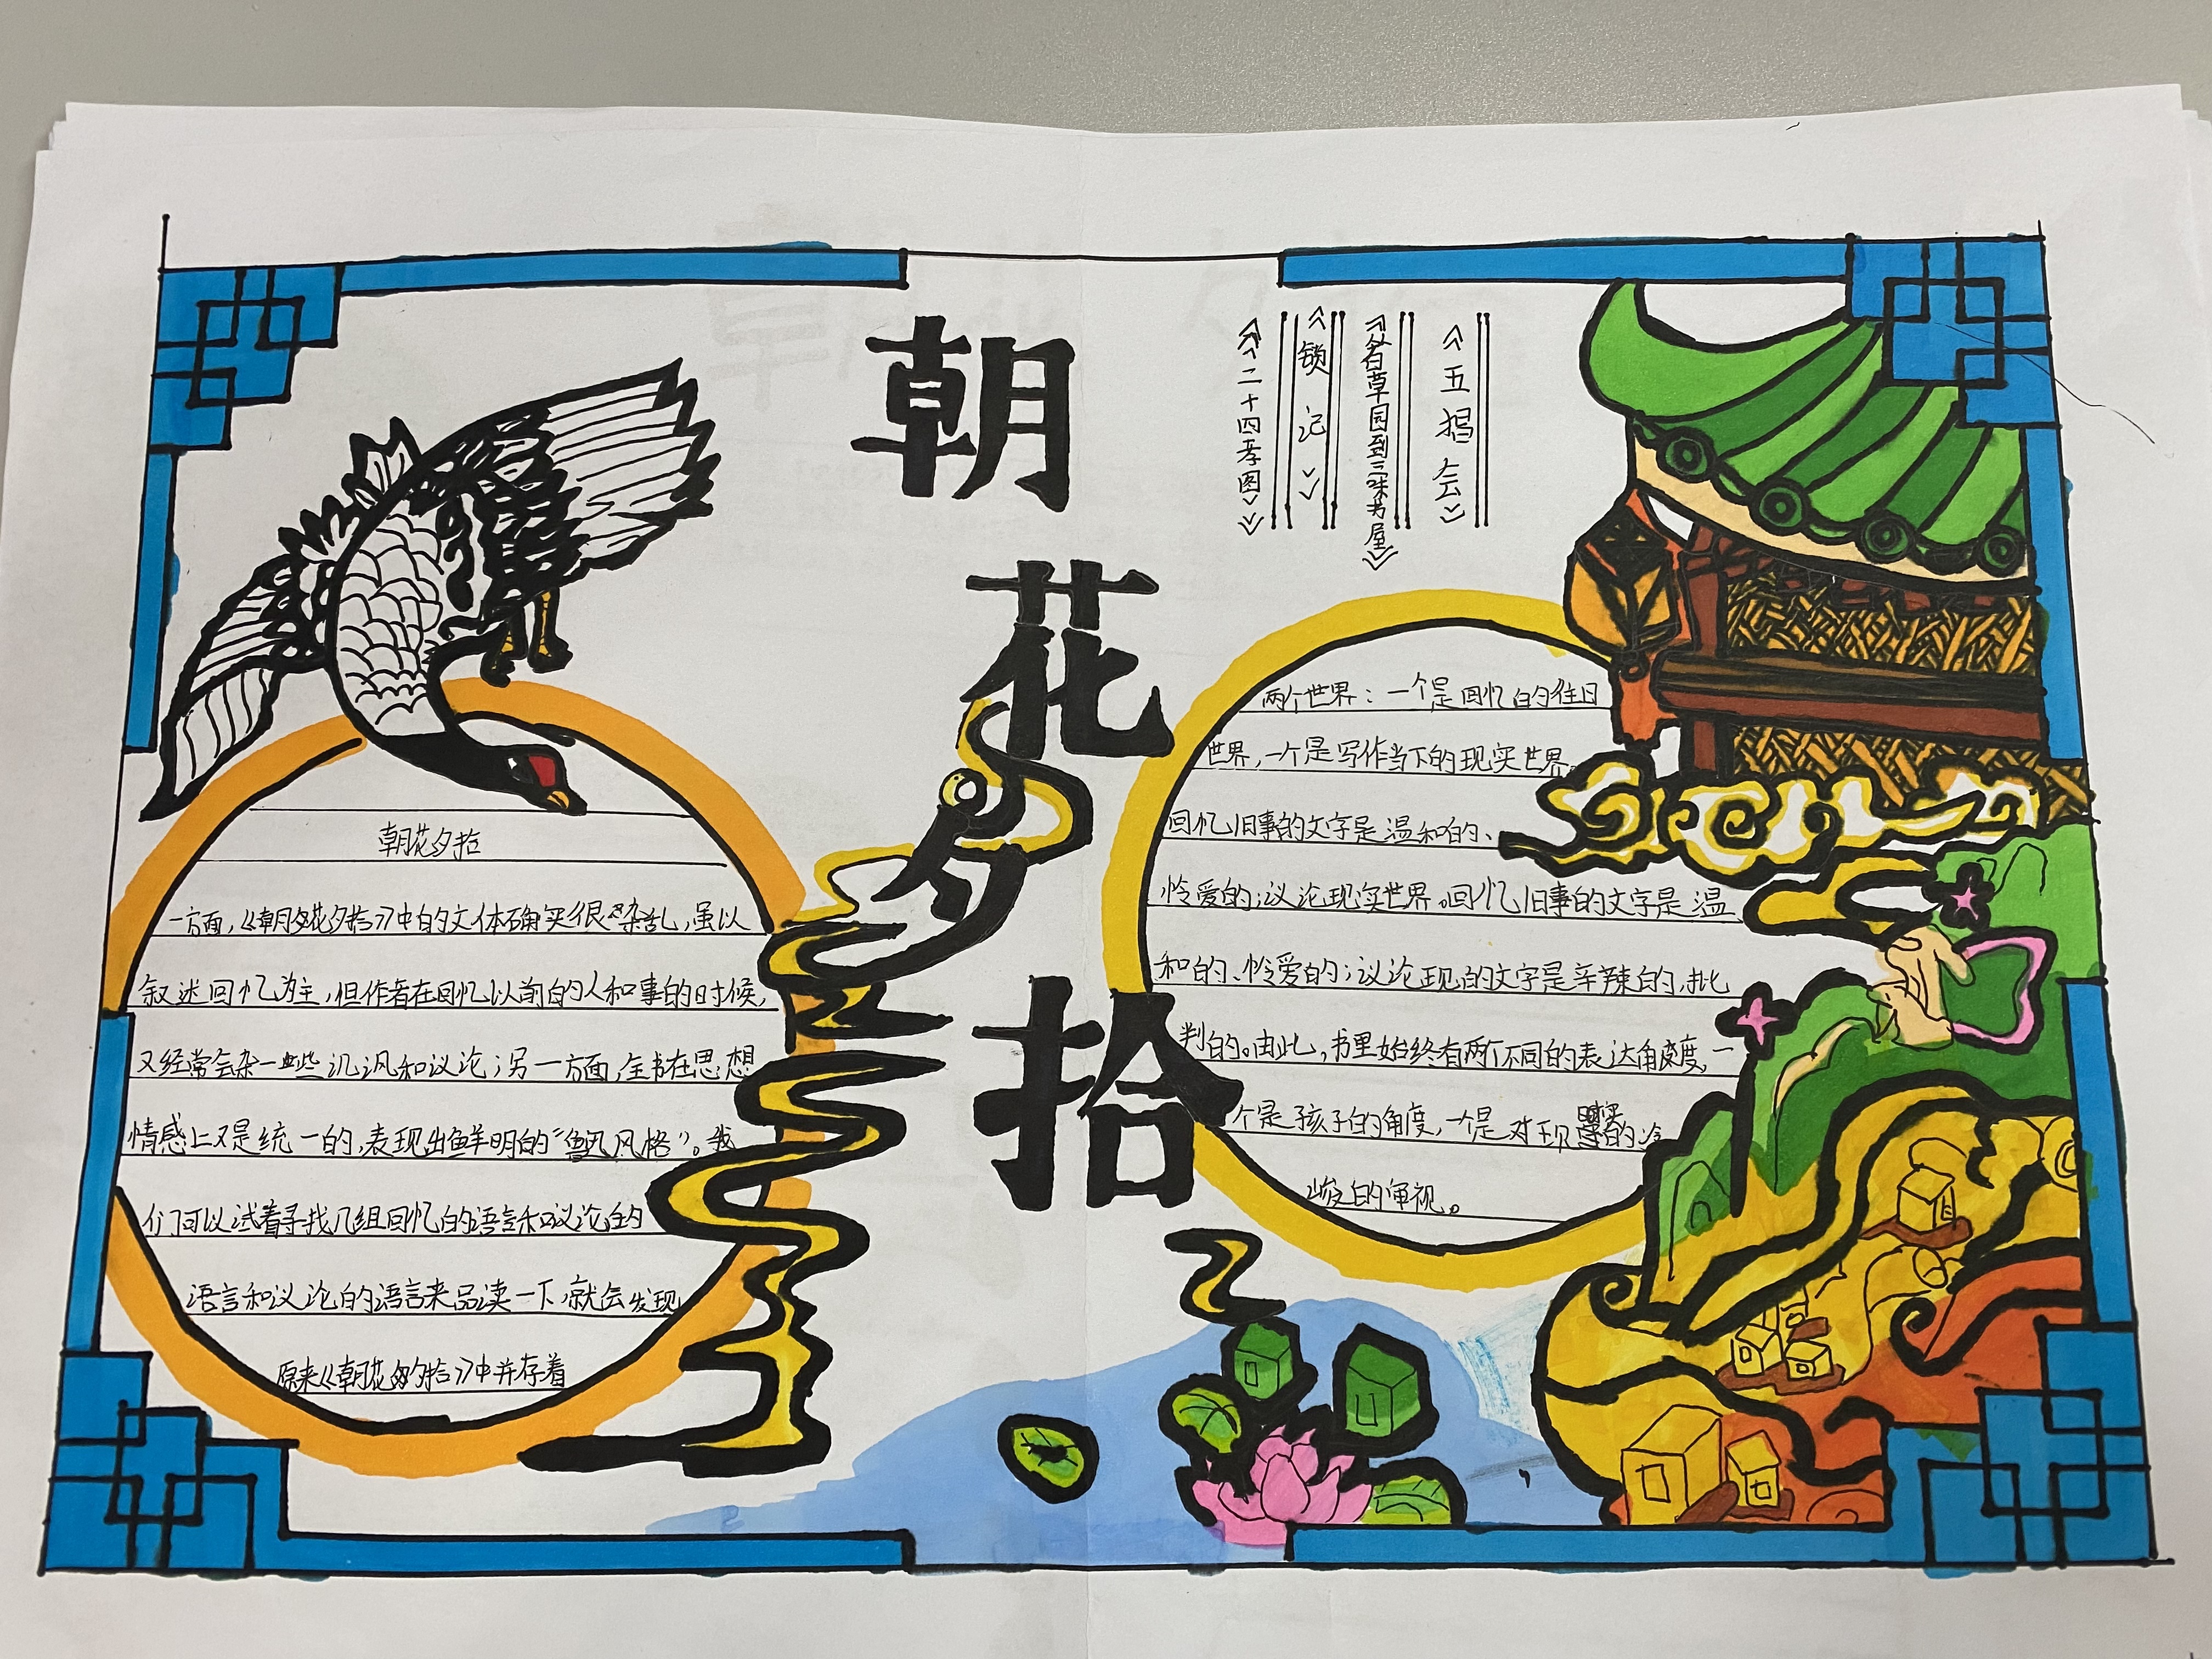 朝
花
夕
拾
《五猖会》
《百草园到三味书屋》
《锁记》
《二十四孝图》
朝花夕拾
一方面,《朝花夕拾》中的文体确实很杂乱,虽以
叙述回忆为主,但作者在回忆以前的人和事的时候,
又经常会杂一些讥讽和议论;另一方面,全书在思想
情感上又是统一的,表现出鲜明的“鲁迅风格”。我
们可以试着寻找几组回忆的语言和议论的
语言和议论的语言来品读一下,就会发现
原来《朝花夕拾》中并存着
两个世界:一个是回忆的往日
世界,一个是写作当下的现实世界。
回忆旧事的文字是温和的、
怜爱的;议论现实世界。回忆旧事的文字是温
和的、怜爱的;议论现的文字是辛辣的,批
判的。由此,书里始终有两个不同的表达角度,一
个是孩子的角度,一个是对现实的冷
峻的审视。